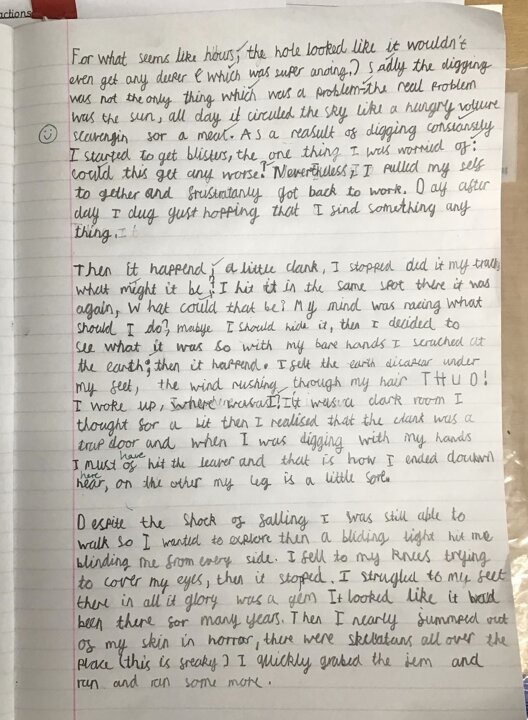 ctions
For what seems like hours; the hole looked like it wouldn't
even get any deeper (which was super anoing.) Sadly the digging
was not the only thing which was a problem-the real problem
was the sun, all day it circuled the sky like a hungry vulture
scavengin for a meat. As a reasult of digging constantsly
I started to get blisters, the one thing I was worried of:
could this get any worse? Nevertheless, I pulled my self
to gether and frustratanly got back to work. Day after
day I dug gust hopping that I find something any
thing.
Then it happend; a little clank, I stopped did it my tracks
what might it be? I hit it in the same spot there it was
again, What could that be? My mind was racing what
should I do? mabye I should hide it, then I decided to
see what it was so with my bare hands I scrached at
the earth; then it happend. I felt the earth disapear under
my feet, the wind rushing through my hair THUD!
I woke up, where was I? It was a dark room I
thought for a bit then I realised that the clank was a
trap door and when I was digging with my hands
have
I must of hit the leaver and that is how I ended douwn
here
hear, on the other my leg is a little sore.
Despite the shock of falling I was still able to
walk so I wanted to explore then a bliding light hit me
blinding me from every side. I fell to my knees trying
to cover my eyes, then it stoped. I strugled to my feet
there in all it glory was a gem It looked like it had
been there for many years. Then I nearly jummped out
of my skin in horror, there were skelatans all over the
place (this is freaky) I quickly grabed the jem and
run and ran some more.